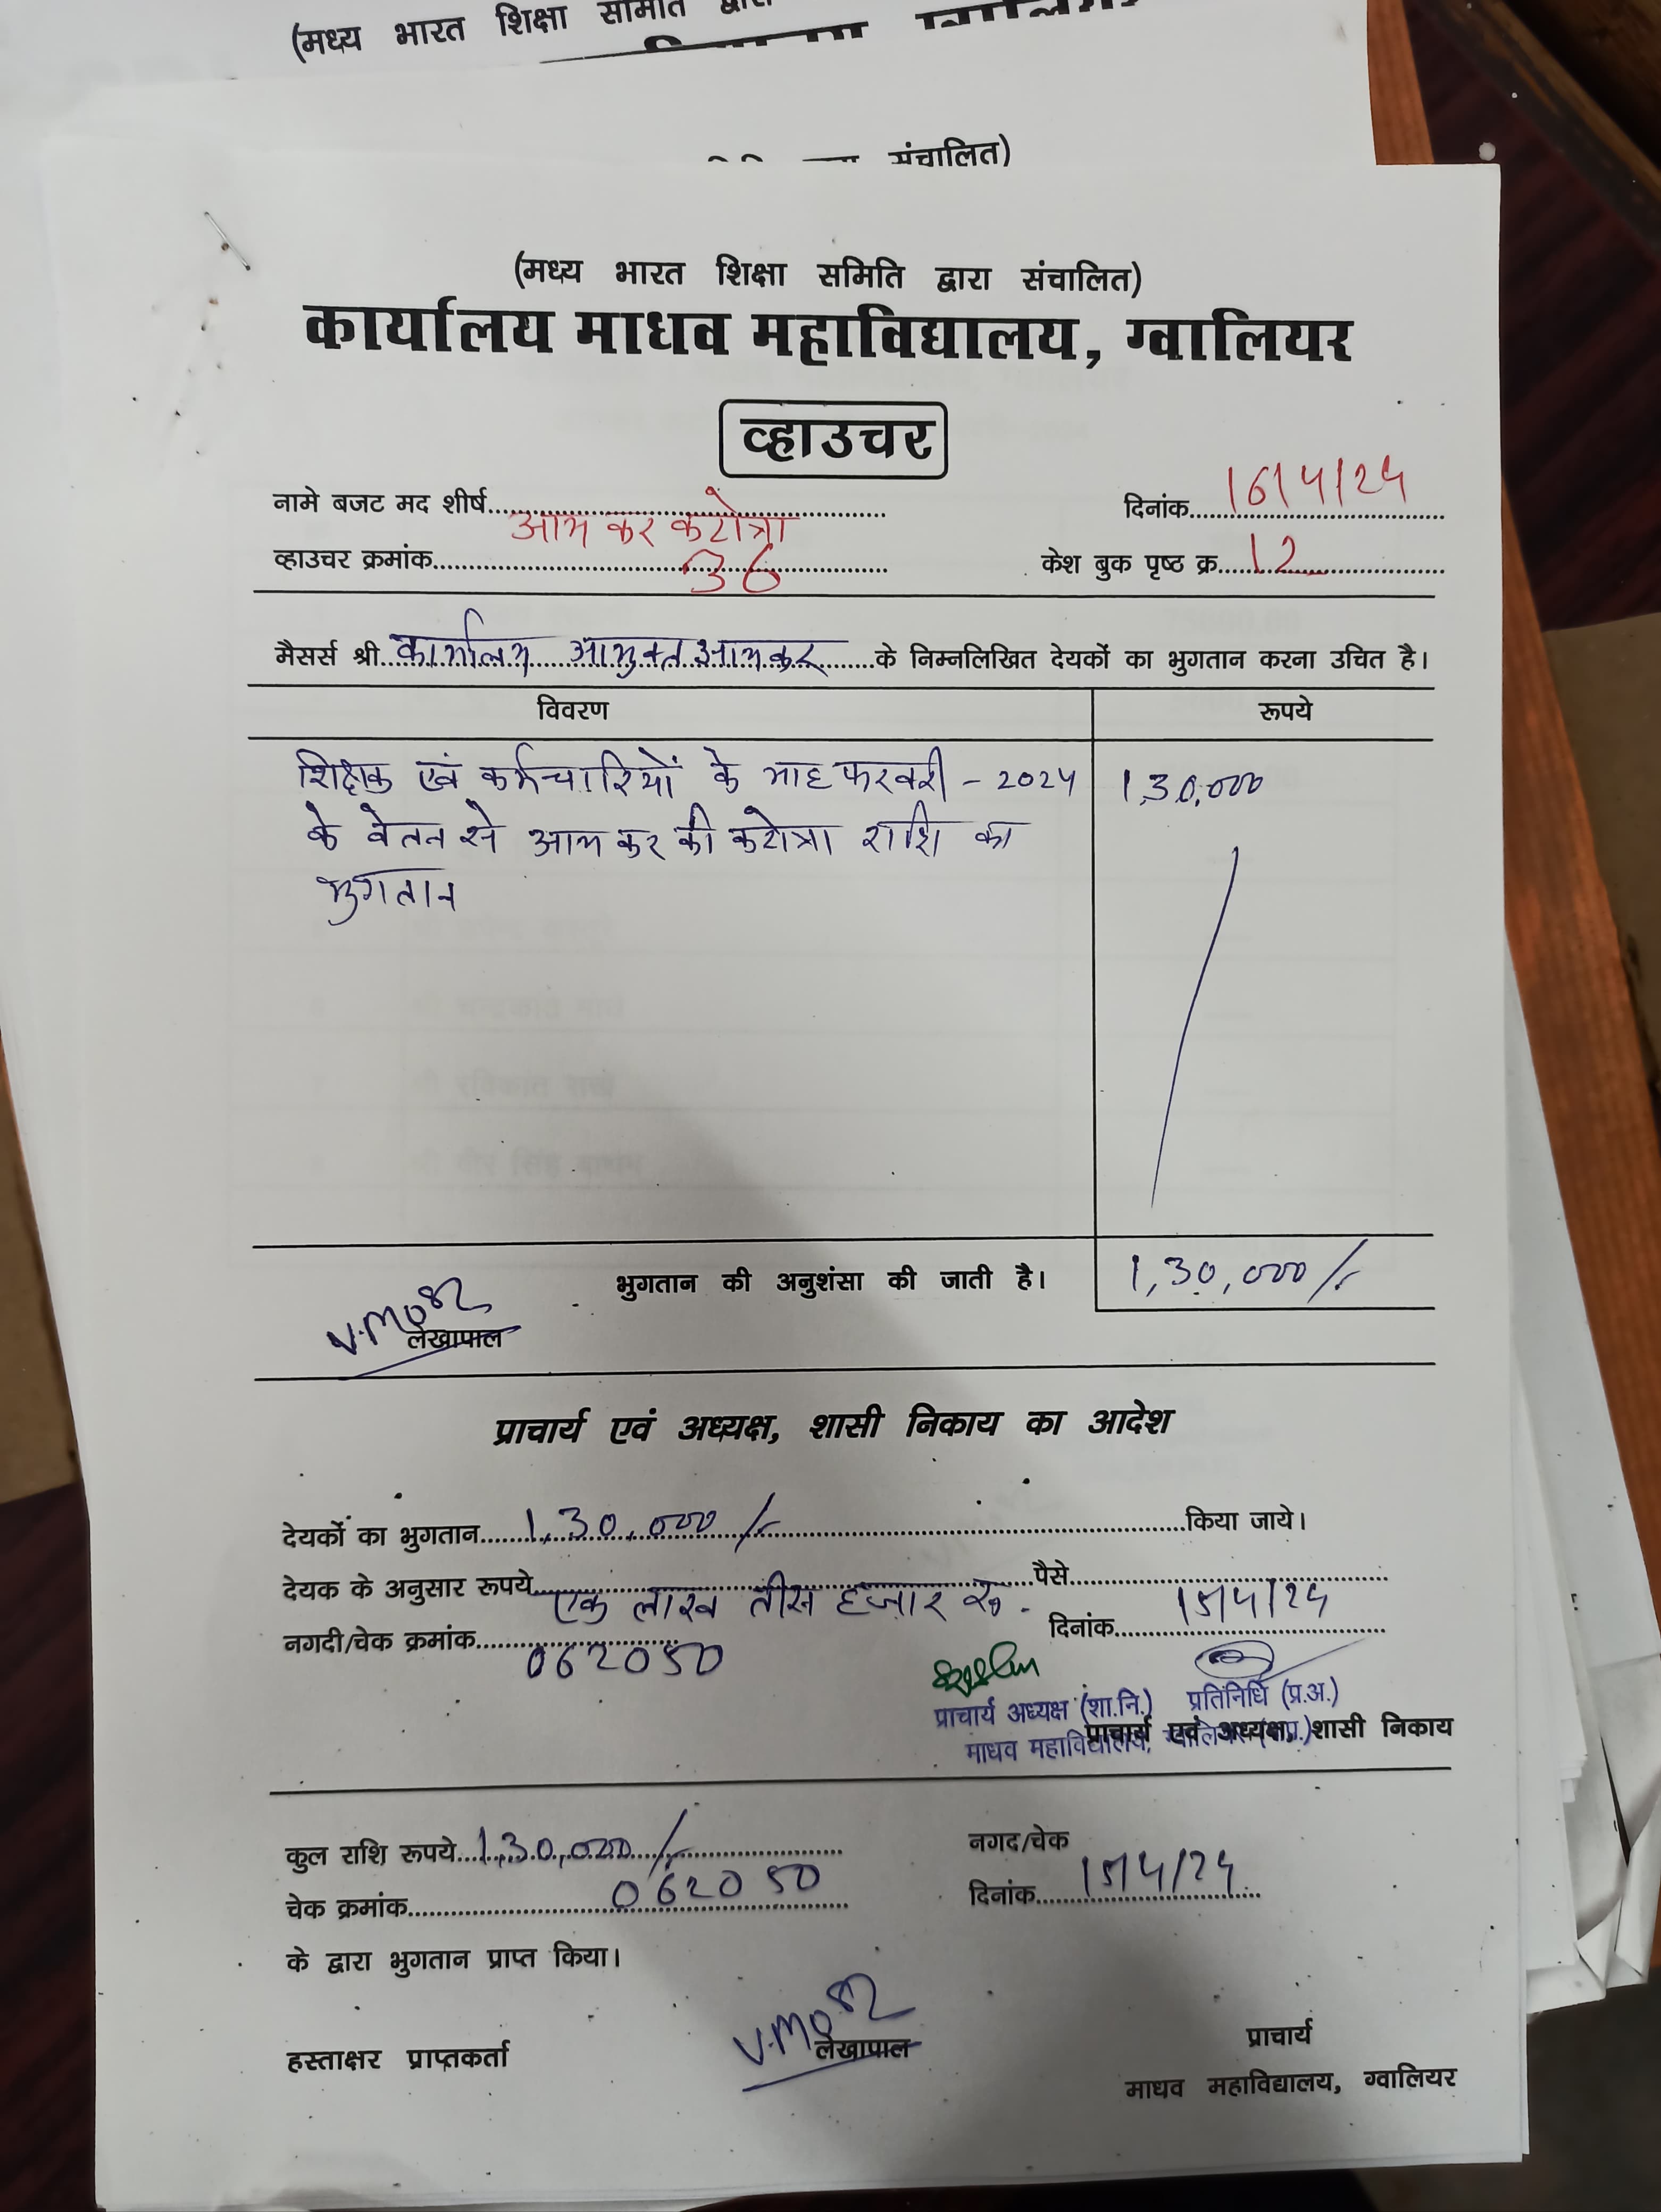 (मध्य भारत शिक्षा समिति द्वारा
संचालित)
(मध्य भारत शिक्षा समिति द्वारा संचालित)
कार्यालय माधव महाविद्यालय, ग्वालियर
व्हाउचर
नामे बजट मद शीर्ष आय कर कटोत्रा दिनांक 16/4/24
व्हाउचर क्रमांक 36 केश बुक पृष्ठ क्र. 12
मैसर्स श्री कार्यालय आयुक्त आयकर के निम्नलिखित देयकों का भुगतान करना उचित है।
विवरण रूपये
शिक्षक एवं कर्मचारियों के माह फरवरी - 2024 1,30,000
के वेतन से आय कर की कटोत्रा राशि का
भुगतान
भुगतान की अनुशंसा की जाती है। 1,30,000/-
लेखापाल
प्राचार्य एवं अध्यक्ष, शासी निकाय का आदेश
देयकों का भुगतान 1,30,000/- किया जाये।
देयक के अनुसार रूपये एक लाख तीस हजार रु. पैसे
नगदी/चेक क्रमांक 062050 दिनांक 15/4/24
प्राचार्य अध्यक्ष (शा.नि.) प्रतिनिधि (प्र.अ.)
प्राचार्य एवं अध्यक्ष, शासी निकाय
माधव महाविद्यालय, ग्वालियर
कुल राशि रूपये 1,30,000/- नगद/चेक
चेक क्रमांक 062050 दिनांक 15/4/24
के द्वारा भुगतान प्राप्त किया।
हस्ताक्षर प्राप्तकर्ता लेखापाल प्राचार्य
माधव महाविद्यालय, ग्वालियर